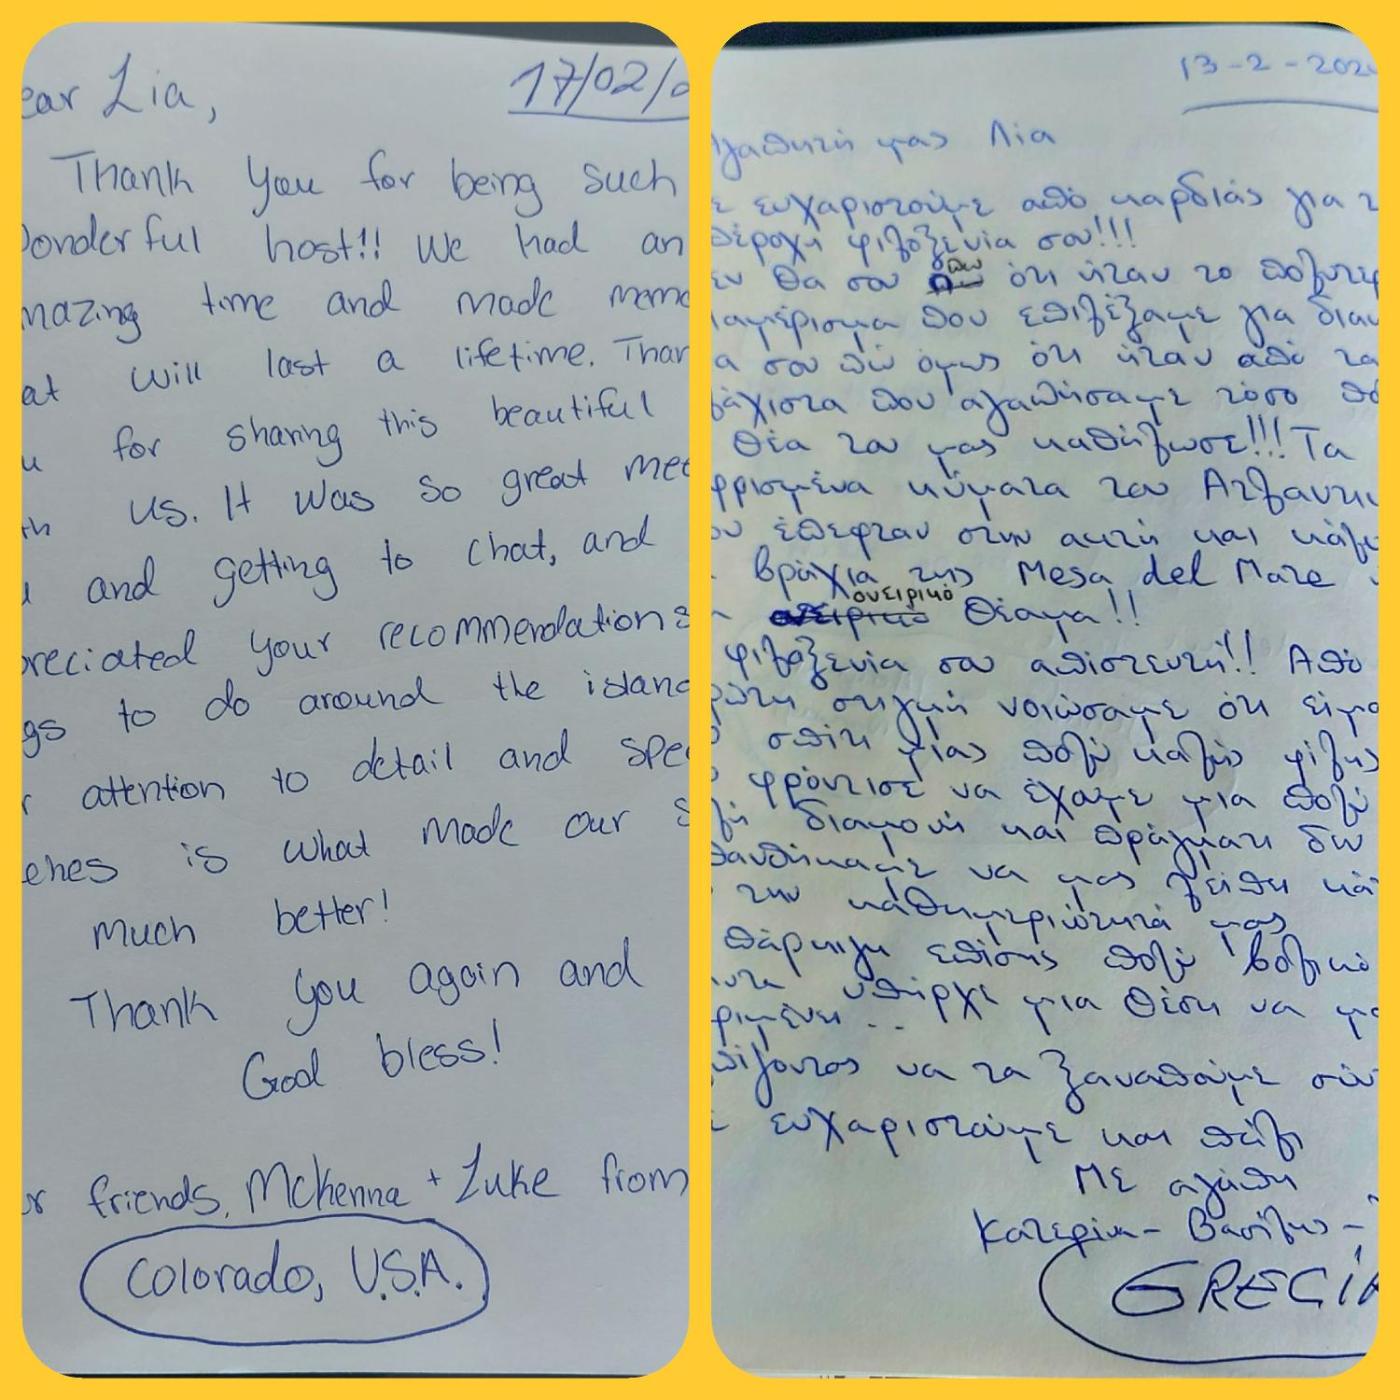 ear Lia,
17/02/2
Thank you for being such
onderful host!! We had an
mazing time and made memo
at will last a lifetime. Than
u for sharing this beautiful
th us. It was so great mee
u and getting to chat, and
preciated your recommendations
gs to do around the island
r attention to detail and spec
ches is what made our s
much better!
Thank you again and
God bless!
ur friends, Mckenna + Luke from
Colorado, U.S.A.
13-2-202
γαπητή μας Λία
ε ευχαριστούμε από καρδιάς για τ
πέροχη φιλοξενία σου!!!
εν θα σου πω ότι ήταν το πολυτε
ιαμέρισμα που επιλέξαμε για διαμ
α σου πω όμως ότι ήταν από τα
λάχιστα που αγαπήσαμε τόσο πο
θέα του μας καθήλωσε!!! Τα
φρισμένα κύματα του Ατλαντι
ου έπεφταν στην ακτή και κάλυ
βράχια της Mesa del Mare
ονειρικό θέαμα!!
φιλοξενία σου απίστευτη!! Από
ρώτη στιγμή νοιώσαμε ότι είμα
σπίτι μίας πολύ καλής φίλης
φρόντισε να έχουμε μια πολύ
λή διαμονή και πράγματι δεν
θανθήκαμε να μας λείπει κά
την καθημεριότητά μας
πάρκιγκ επίσης πολύ βολικό
υπήρχε μια θέση να μα
ριμένει ..
πίζοντας να τα ξαναπούμε σύν
ε ευχαριστούμε και πάλι
Με αγάπη
Κατερίνα - Βασίλης -
GRECIA